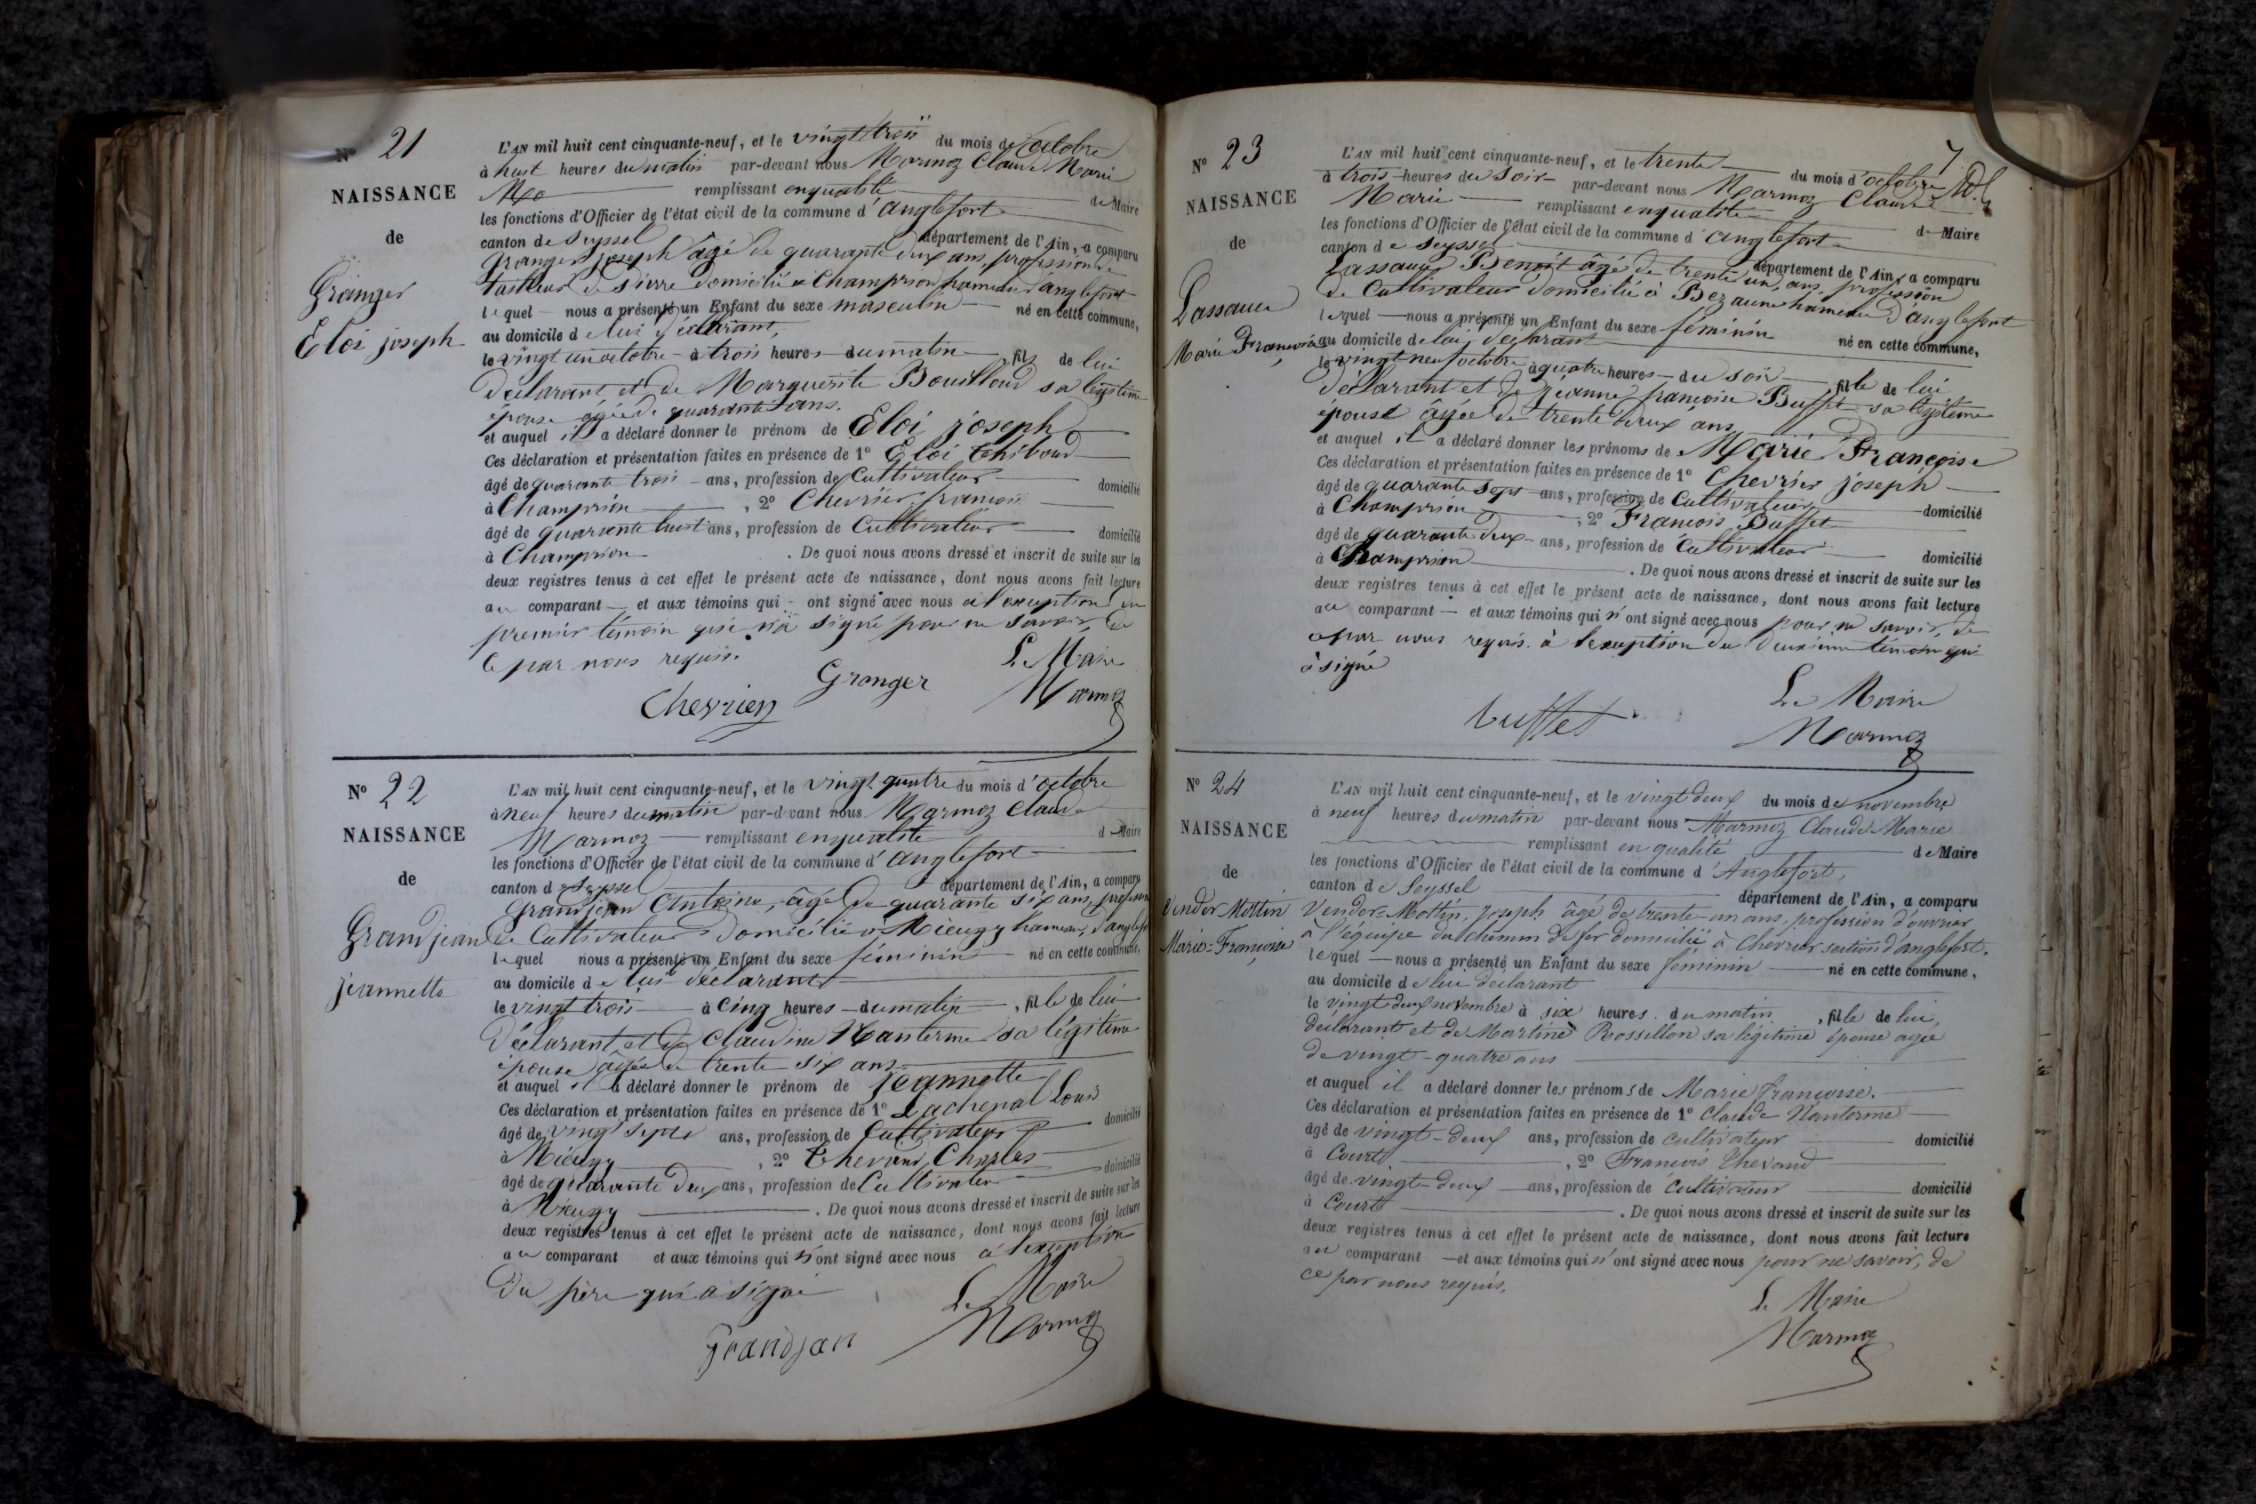 N° 21
NAISSANCE
de
Granger
Eloi joseph
L'AN mil huit cent cinquante-neuf, et le vingt trois du mois de octobre
à huit heures du matin par-devant nous Marmoz Claude Marie
remplissant en qualité de Maire
les fonctions d'Officier de l'état civil de la commune d'anglefort
canton de Seyssel département de l'Ain, a comparu
Granger joseph âgé de quarante deux ans, profession de
tailleur de pierre domicilié à Champrion hameau d'anglefort
lequel nous a présenté un Enfant du sexe masculin né en cette commune,
au domicile de lui déclarant,
le vingt un octobre à trois heures du matin fils de lui
déclarant et de Marguerite Bouilloud sa légitime
épouse âgée de quarante ans.
et auquel il a déclaré donner le prénom de Eloi joseph
Ces déclaration et présentation faites en présence de 1° Eloi
âgé de quarante trois ans, profession de Cultivateur domicilié
à Champrion, 2° Chevrier françois
âgé de quarante huit ans, profession de Cultivateur domicilié
à Champrion. De quoi nous avons dressé et inscrit de suite sur les
deux registres tenus à cet effet le présent acte de naissance, dont nous avons fait lecture
au comparant et aux témoins qui ont signé avec nous à l'exception du
premier témoin qui n'a signé pour ne savoir, de
ce par nous requis.
Le Maire
Granger
Chevrier
Marmoz
N° 22
NAISSANCE
de
Grandjean
jeannette
L'AN mil huit cent cinquante-neuf, et le vingt quatre du mois d'octobre
à neuf heures du matin par-devant nous Marmoz Claude
Marmoz remplissant en qualité de Maire
les fonctions d'Officier de l'état civil de la commune d'anglefort
canton de Seyssel département de l'Ain, a comparu
Grandjean Antoine, âgé de quarante six ans, profession
de Cultivateur domicilié à Mieugy hameau d'anglefort
lequel nous a présenté un Enfant du sexe féminin né en cette commune,
au domicile de lui déclarant
le vingt trois à cinq heures du matin, fille de lui
déclarant et de Claudine Nanterme sa légitime
épouse âgée de trente six ans
et auquel il a déclaré donner le prénom de jeannette
Ces déclaration et présentation faites en présence de 1° Lachenal Louis
âgé de vingt septe ans, profession de Cultivateur domicilié
à Mieugy, 2° Chevaud Charles
âgé de quarante deux ans, profession de Cultivateur domicilié
à Mieugy. De quoi nous avons dressé et inscrit de suite sur les
deux registres tenus à cet effet le présent acte de naissance, dont nous avons fait lecture
au comparant et aux témoins qui n'ont signé avec nous à l'exception
du père qui a signé
Le Maire
Grandjan
Marmoz
7
N° 23
NAISSANCE
de
Lassauce
Marie Françoise
L'AN mil huit cent cinquante-neuf, et le trente du mois d'octobre
à trois heures du soir par-devant nous Marmoz Claude
Marie remplissant en qualité de Maire
les fonctions d'Officier de l'état civil de la commune d'anglefort
canton de Seyssel département de l'Ain, a comparu
Lassauce Benoit âgé de trente un ans, profession
de Cultivateur domicilié à Bezaune hameau d'anglefort
lequel nous a présenté un Enfant du sexe féminin né en cette commune,
au domicile de lui, déclarant
le vingt neuf octobre à quatre heures du soir, fille de lui
déclarant et de jeanne françoise Buffet sa légitime
épouse âgée de trente deux ans
et auquel il a déclaré donner les prénoms de Marie Françoise
Ces déclaration et présentation faites en présence de 1° Chevrier joseph
âgé de quarante sept ans, profession de Cultivateur domicilié
à Champrion, 2° François Buffet
âgé de quarante deux ans, profession de Cultivateur domicilié
à Champrion. De quoi nous avons dressé et inscrit de suite sur les
deux registres tenus à cet effet le présent acte de naissance, dont nous avons fait lecture
au comparant et aux témoins qui n'ont signé avec nous pour ne savoir, de
ce par nous requis. à l'exception du deuxième témoin qui
à signé
Le Maire
buffet
Marmoz
N° 24
NAISSANCE
de
Vendor Mottin
Marie=Françoise
L'AN mil huit cent cinquante-neuf, et le vingt deux du mois de novembre
à neuf heures du matin par-devant nous Marmoz Claude Marie
remplissant en qualité de Maire
les fonctions d'Officier de l'état civil de la commune d'Anglefort,
canton de Seyssel département de l'Ain, a comparu
Vendor=Mottin, joseph âgé de trente-un ans, profession d'ouvrier
à l'équipe du chemin de fer domicilié à Chevrier section d'anglefort.
lequel nous a présenté un Enfant du sexe féminin né en cette commune,
au domicile de lui déclarant
le vingt-deux novembre à six heures du matin, fille de lui,
déclarant et de Martine Rossillon sa légitime épouse agée
de vingt-quatre ans
et auquel il a déclaré donner les prénoms de Marie françoise.
Ces déclaration et présentation faites en présence de 1° Claude Nanterme
âgé de vingt-deux ans, profession de cultivateur domicilié
à Courts, 2° François Chevaud
âgé de vingt-deux ans, profession de cultivateur domicilié
à Courts. De quoi nous avons dressé et inscrit de suite sur les
deux registres tenus à cet effet le présent acte de naissance, dont nous avons fait lecture
au comparant et aux témoins qui n'ont signé avec nous pour ne savoir, de
ce par nous requis.
Le Maire
Marmoz